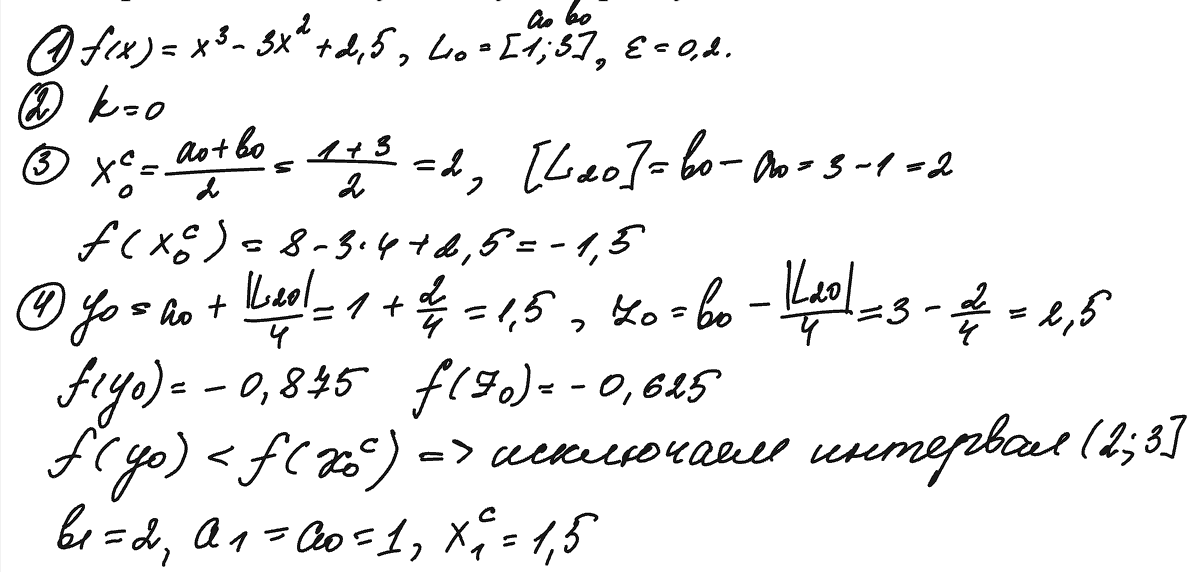 a₀ b₀
① f(x) = x³ - 3x² + 2,5, L₀ = [1; 3], ε = 0,2.
② k = 0
③ x₀ᶜ = (a₀ + b₀)/2 = (1 + 3)/2 = 2, [L₂₀] = b₀ - a₀ = 3 - 1 = 2
f(x₀ᶜ) = 8 - 3·4 + 2,5 = -1,5
④ y₀ = a₀ + |L₂₀|/4 = 1 + 2/4 = 1,5, z₀ = b₀ - |L₂₀|/4 = 3 - 2/4 = 2,5
f(y₀) = - 0,875 f(z₀) = - 0,625
f(y₀) < f(x₀ᶜ) => исключаем интервал (2; 3]
b₁ = 2, a₁ = a₀ = 1, x₁ᶜ = 1,5